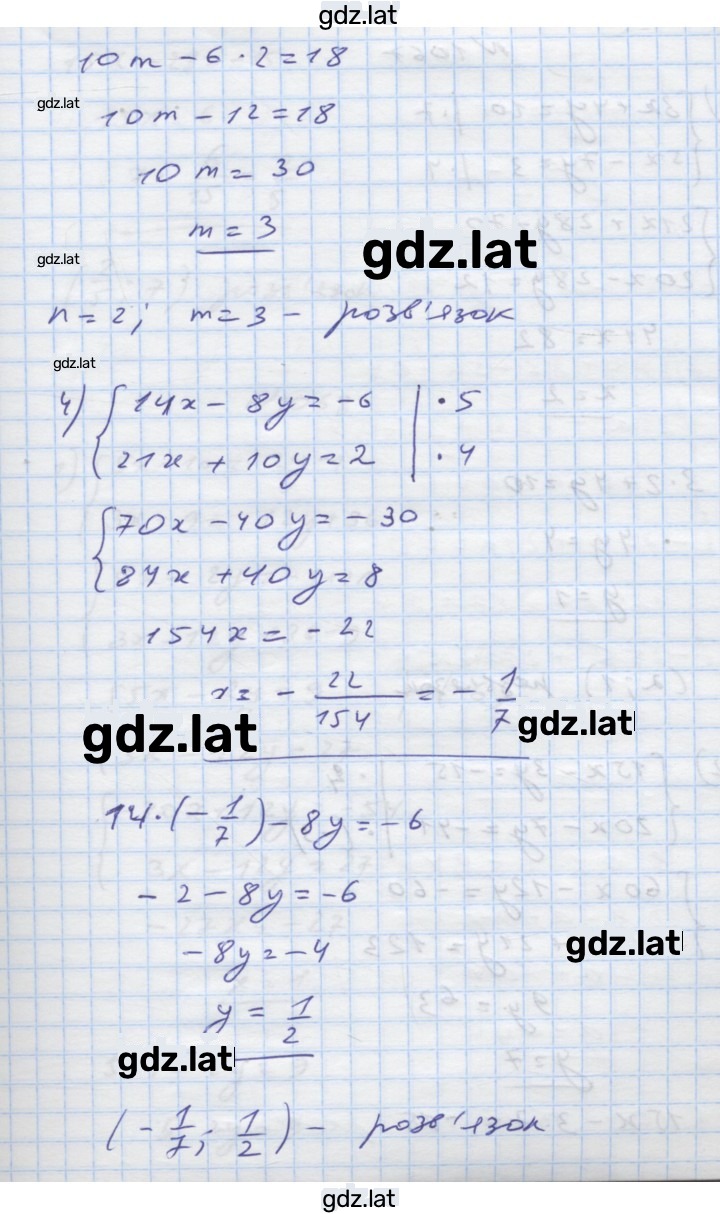 gdz.lat
10m - 6 · 2 = 18
gdz.lat
10m - 12 = 18
10m = 30
m = 3
gdz.lat
gdz.lat
n = 2; m = 3 - розв'язок
gdz.lat
4) { 14x - 8y = -6 | · 5
21x + 10y = 2 | · 4
{ 70x - 40y = -30
84x + 40y = 8
154x = -22
x = - 22/154 = - 1/7
gdz.lat
gdz.lat
14 · (- 1/7) - 8y = -6
- 2 - 8y = -6
gdz.lat
- 8y = -4
y = 1/2
gdz.lat
(- 1/7; 1/2) - розв'язок
gdz.lat